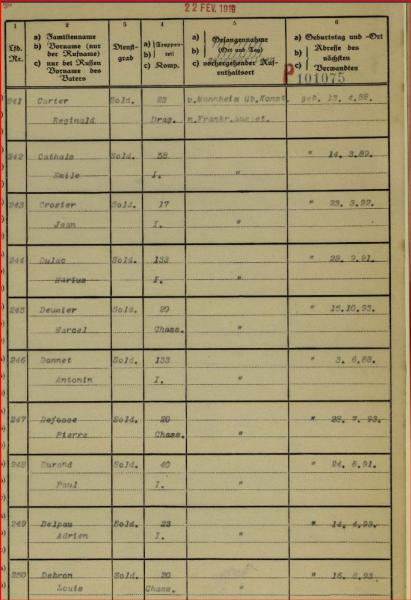 22 FEV. 1918
1 2 3 4 5 6
Lfd. Nr.
a) Familienname
b) Vorname (nur der Rufname)
c) nur bei Russen Vorname des Vaters
Dienst-grad
a) Truppen-teil
b)
c) Komp.
a) Gefangennahme
b) (Ort und Tag)
c) vorhergehender Auf-enthaltsort
a) Geburtstag und -Ort
b) Adresse des nächsten Verwandten
c)
P 101075
241 Carter Sold. 23 v. Mannheim üb. Konst. geb. 13. 4.88.
Reginald Drag. n. Frankr.
242 Cathala Sold. 58 " 14. 3.89.
Emile I. "
243 Crozier Sold. 17 " 23. 3.92.
Jean I. "
244 Dulac Sold. 133 " 29. 9.91.
Marius I. "
245 Deunier Sold. 20 " 15.10.93.
Marcel Chass. "
246 Donnet Sold. 133 " 3. 6.88.
Antonin I. "
247 Defosse Sold. 20 " 28. 7. 93.
Pierre Chass. "
248 Durand Sold. 40 " 24. 6.91.
Paul I. "
249 Delpau Sold. 23 " 14. 4.93.
Adrien I. "
250 Debron Sold. 20 " 16. 6.93.
Louis Chass. "